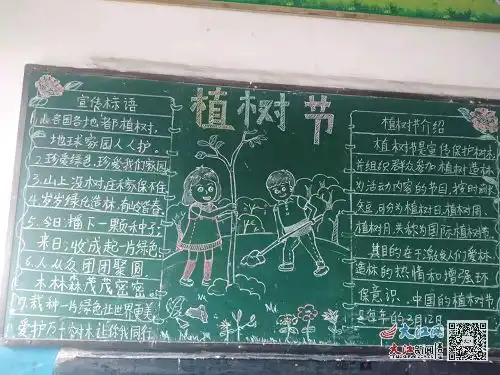 植树节
宣传标语
1.世界各国各地都植树,
地球家园人人护。
2.珍爱绿色,珍爱我们家园
3.山上没树,庄稼保不住
4.岁岁绿化造林,年年踏春
5.今日播下一颗种子,
来日收成起一片绿色
6.人从众 团团聚圆
木林森 茂茂密密。
7.栽种一片绿色让世界更美
爱护万千树木让你我同行。
植树节介绍
植树节是宣传保护树木,
并组织群众参加植树造林
为活动内容的节日。按时间
长短可分为植树日、植树周、
植树月,共称为国际植树节。
其目的在于激发人们爱林
造林的热情和增强环
保意识。中国的植树节
是每年的3月12日
大江网
大江新闻